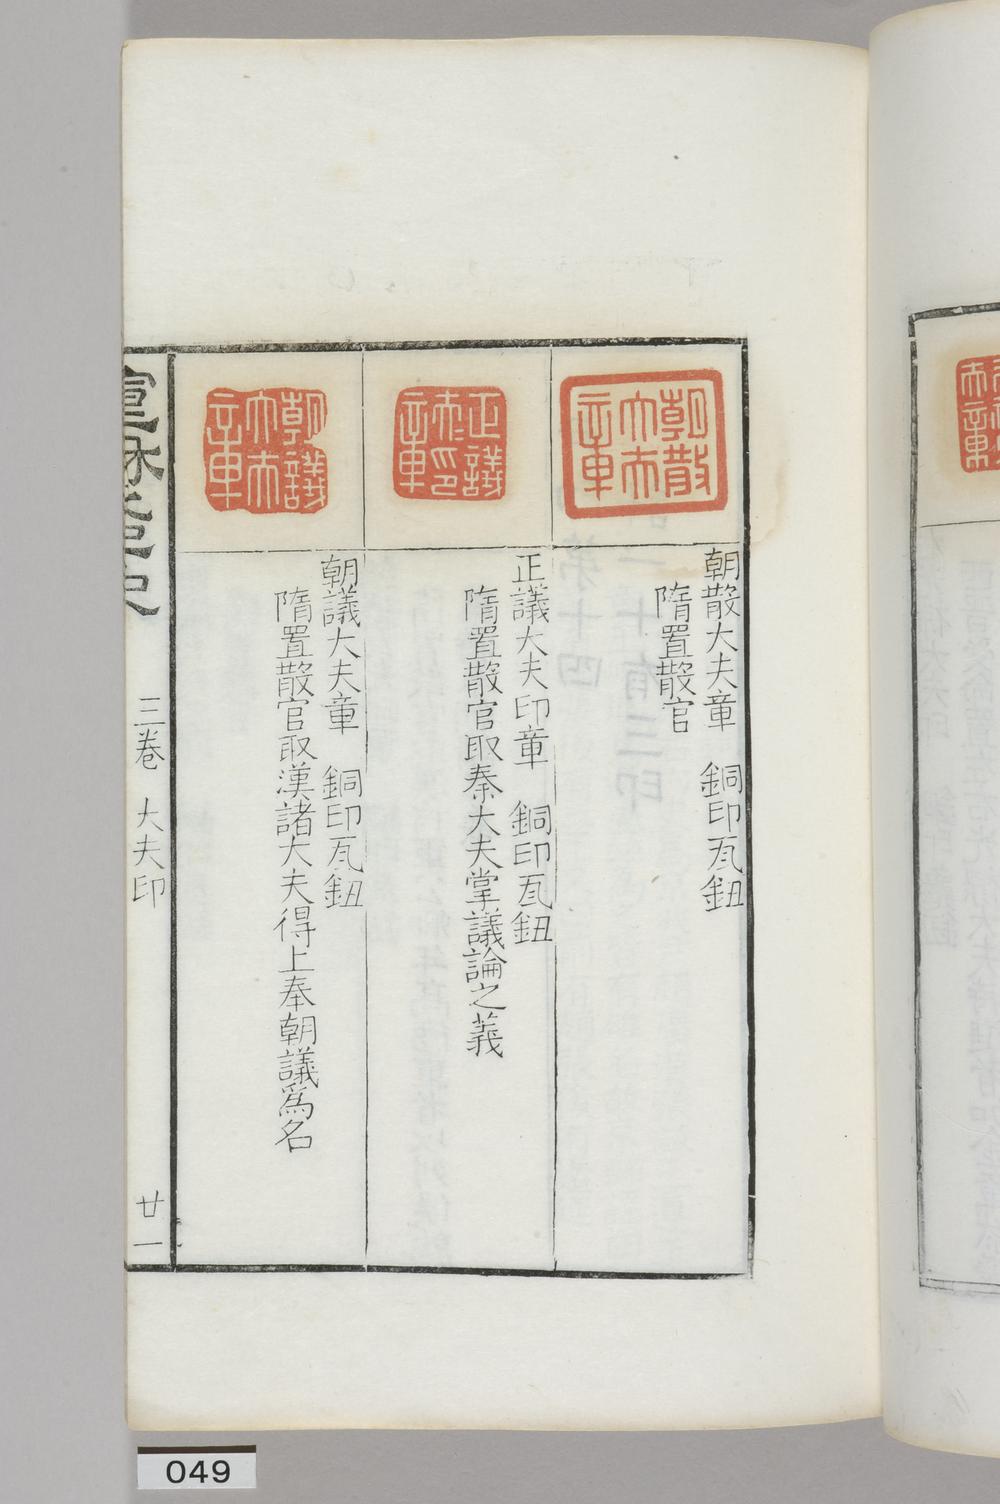 朝散大夫章
朝散大夫章　銅印瓦鈕
隋置散官
正議大夫印章
正議大夫印章　銅印瓦鈕
隋置散官取秦大夫掌議論之義
朝議大夫章
朝議大夫章　銅印瓦鈕
隋置散官取漢諸大夫得上奉朝議為名
三卷　大夫印
廿一
049